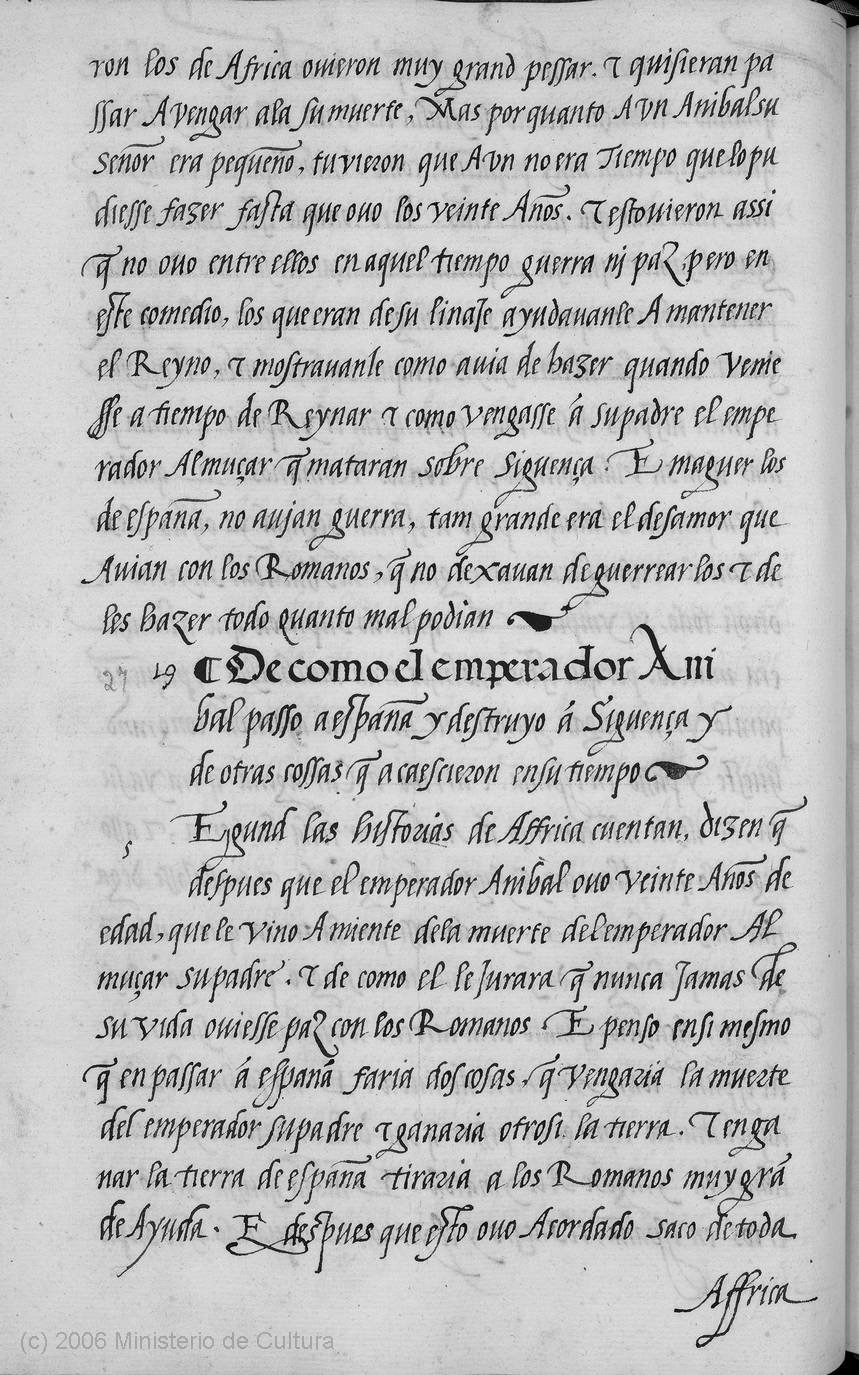 ron los de Africa ovieron muy grand pessar. τ quisieran pa
ssar A vengar ala su muerte, Mas por quanto Avn Anibal su
Señor era pequeño, tuvieron que Avn no era Tiempo que lo pu
diesse fazer fasta que ovo los veinte Años. τ estovieron assi
q̃ no ovo entre ellos en aquel tiempo guerra nj paz, pero en
este comedio, los que eran de su linaJe ayudauanle A mantener
el Reyno, τ mostrauanle como auia de hazer quando venie
sse a tiempo de Reynar τ como vengasse á su padre el empe
rador Almuçar q̃ mataran sobre Siguença. E maguer los
de españa, no aujan guerra, tam grande era el desamor que
Auian con los Romanos, q̃ no dexauan de guerrear los τ de
les hazer todo quanto mal podian
27 19 ¶ De como el emperador Ani
bal passo a españa y destruyo á Siguença y
de otras cossas q̃ acaescieron en su tiempo
s Egund las historias de Affrica cuentan, dizen q̃
despues que el emperador Anibal ovo veinte Años de
edad, que le vino A miente dela muerte del emperador Al
muçar su padre. τ de como el le Jurara q̃ nunca Jamas de
su vida oviesse paz con los Romanos. E penso en si mesmo
q̃ en passar á españa faria dos cosas, q̃ vengaria la muerte
del emperador su padre τ ganaria otrosi la tierra. τ en ga
nar la tierra de españa tiraria a los Romanos muy grã
de Ayuda. E despues que esto ovo Acordado saco de toda
Affrica
(c) 2006 Ministerio de Cultura